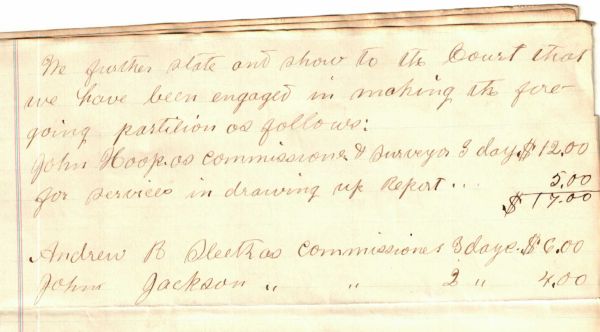 We further state and show to the Court that
we have been engaged in making the fore-
going partition as follows:
John Hoop as commissioner & surveyor 3 days $12.00
for services in drawing up Report ... 5.00
$17.00
Andrew B Sleeth as commissioner 3 days. $6.00
John Jackson " " 2 " 4.00